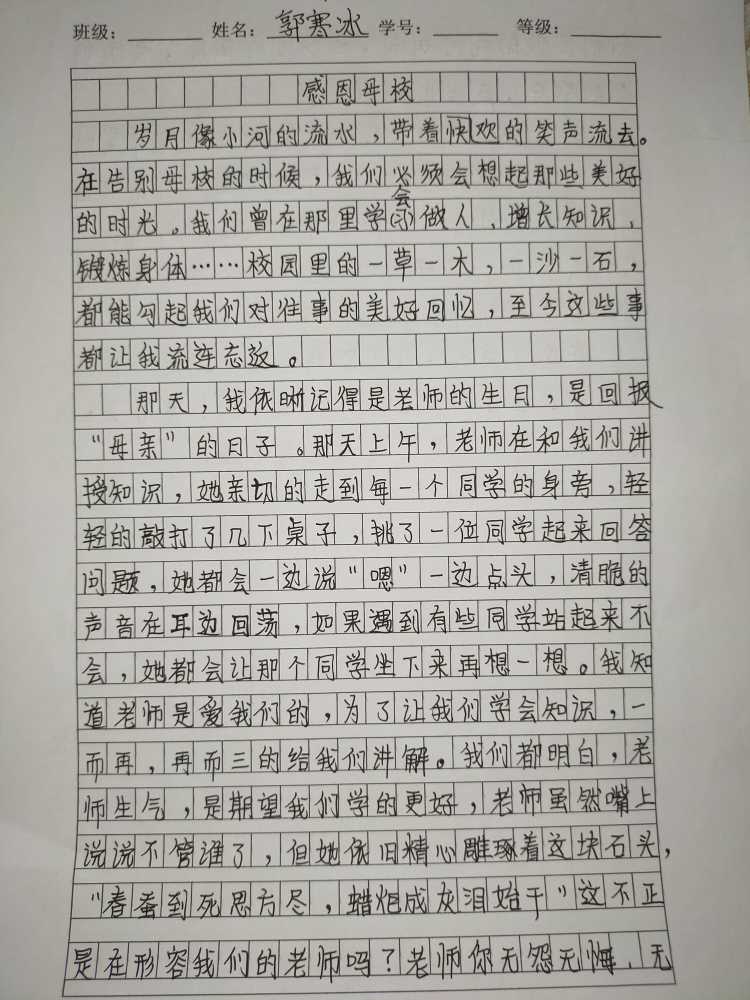 班级： 姓名：郭寒冰 学号： 等级：
感恩母校
岁月像小河的流水，带着快欢的笑声流去。
在告别母校的时候，我们必须会想起那些美好
的时光。我们曾在那里学会做人、增长知识、
锻炼身体……校园里的一草一木，一沙一石，
都能勾起我们对往事的美好回忆，至今这些事
都让我流连忘返。
那天，我依晰记得是老师的生日，是回报
“母亲”的日子。那天上午，老师在和我们讲
授知识，她亲切的走到每一个同学的身旁，轻
轻的敲打了几下桌子，挑了一位同学起来回答
问题，她都会一边说“嗯”一边点头，清脆的
声音在耳边回荡，如果遇到有些同学站起来不
会，她都会让那个同学坐下来再想一想。我知
道老师是爱我们的，为了让我们学会知识，一
而再，再而三的给我们讲解。我们都明白，老
师生气，是期望我们学的更好，老师虽然嘴上
说说不管谁了，但她依旧精心雕琢着这块石头，
“春蚕到死思方尽，蜡炬成灰泪始干”这不正
是在形容我们的老师吗？老师你无怨无悔、无